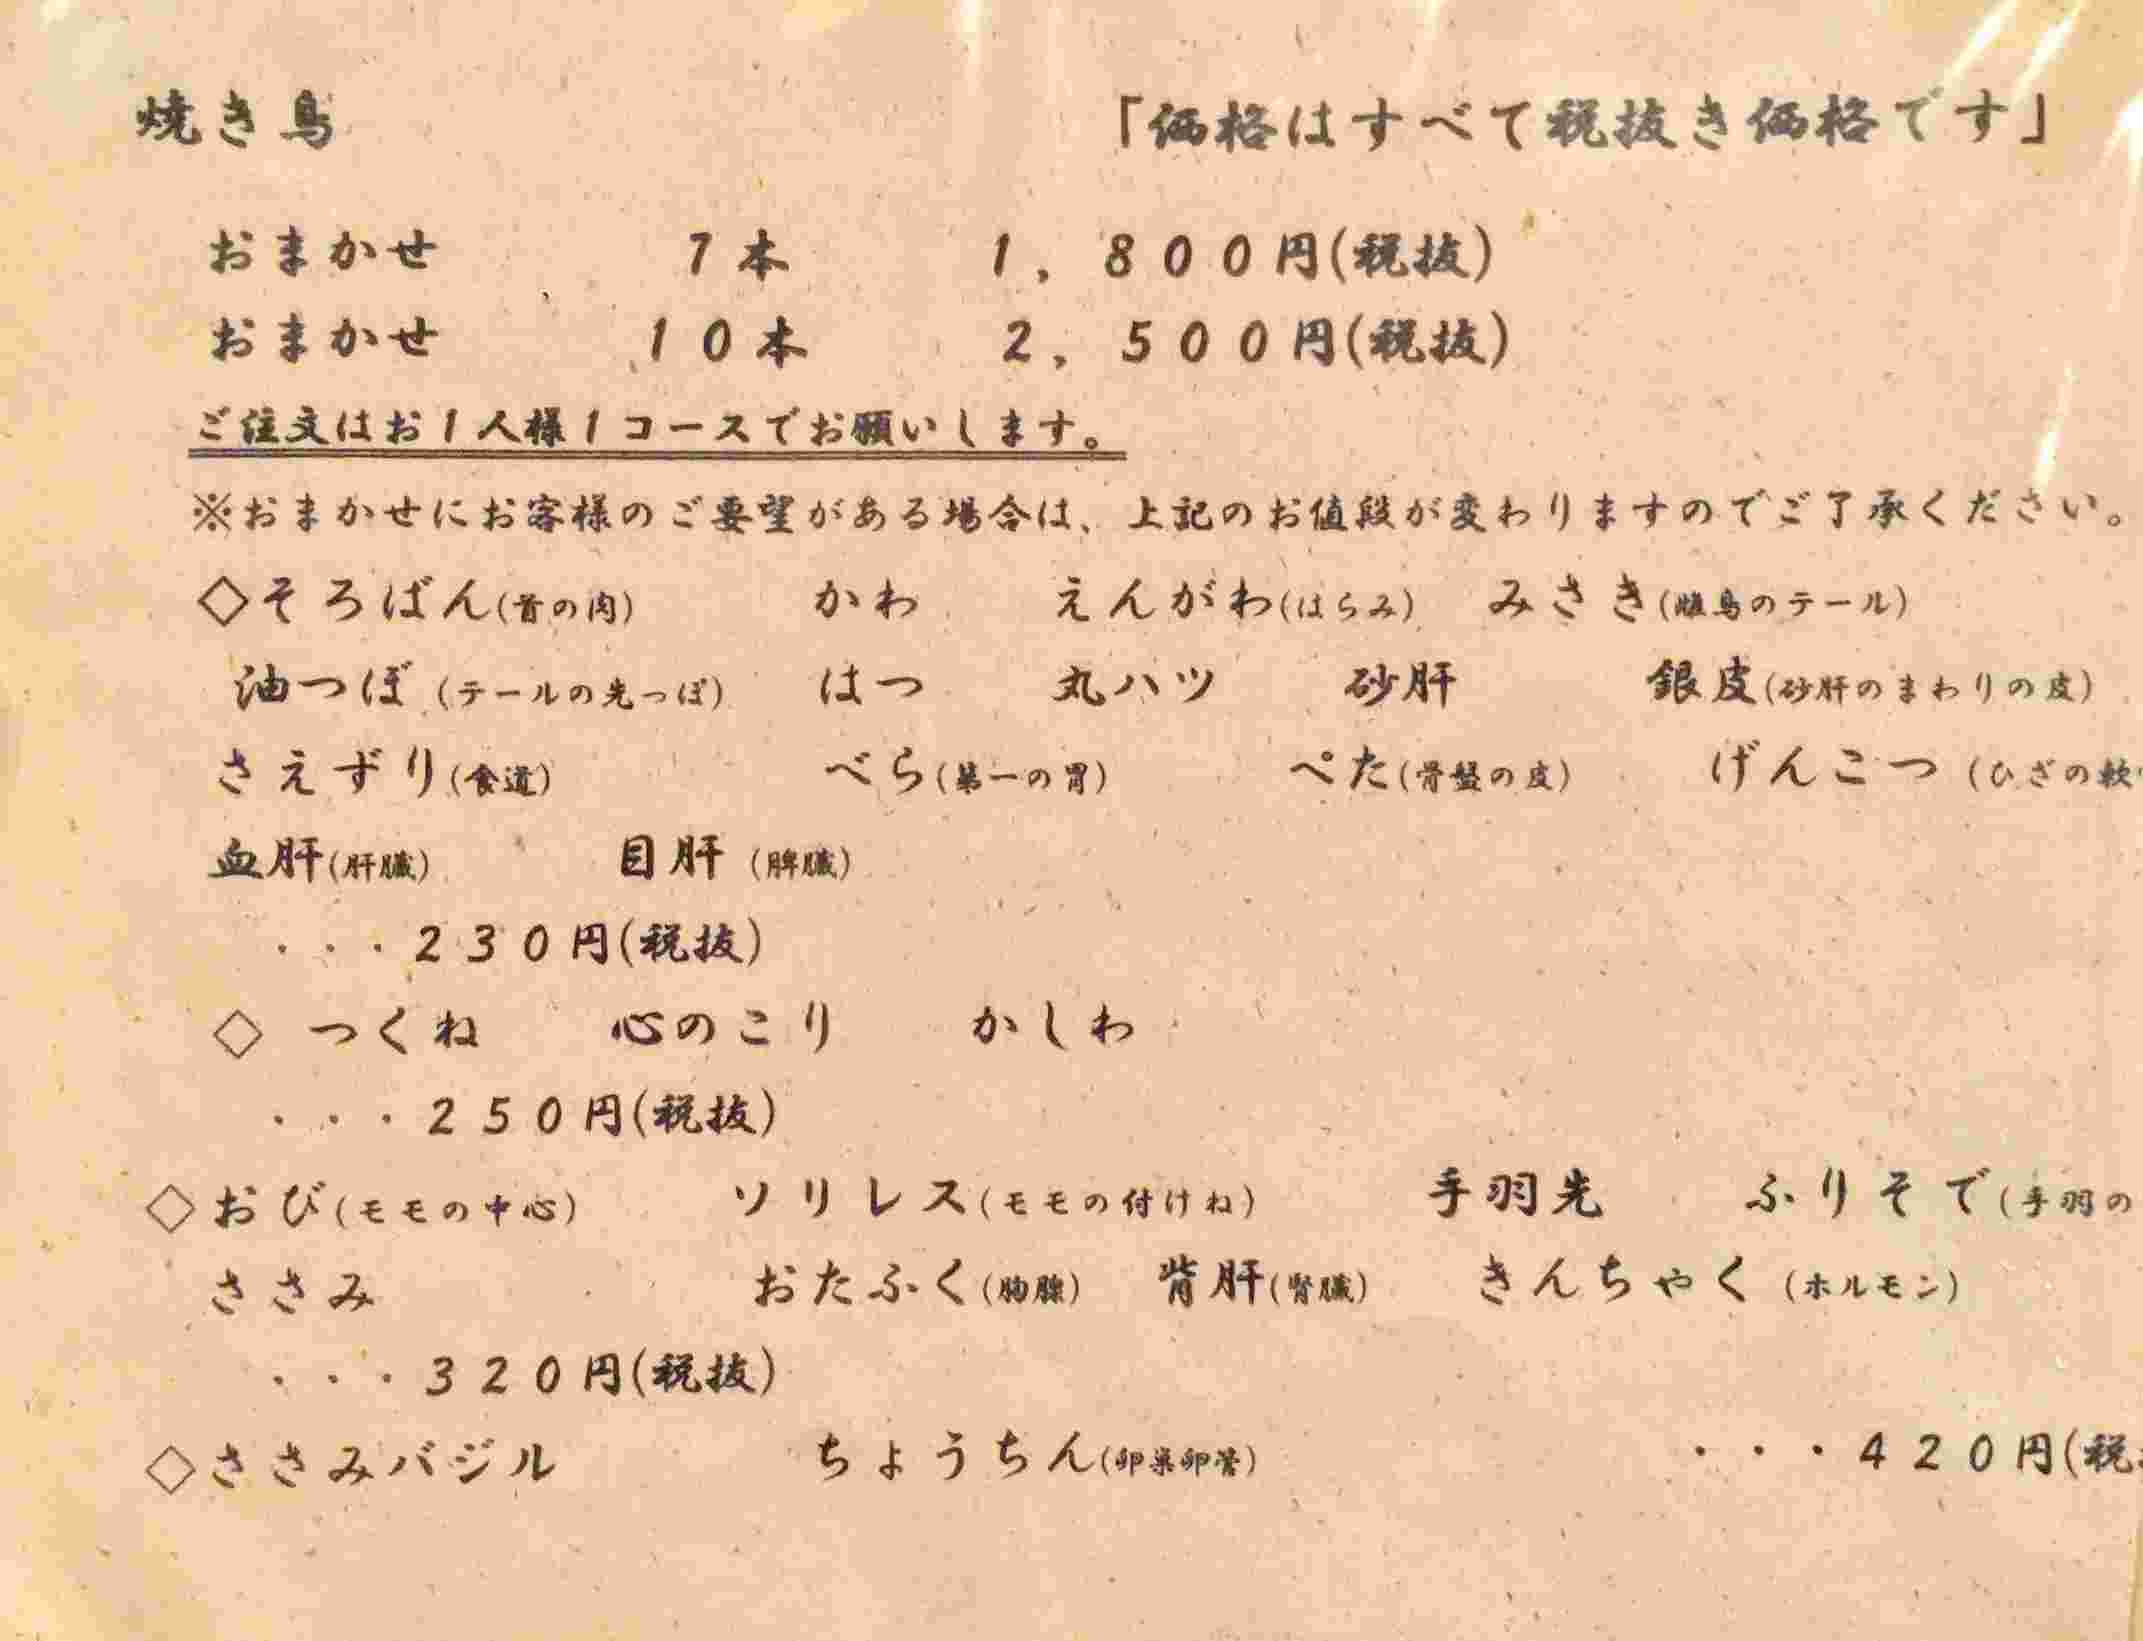 焼き鳥 「価格はすべて税抜き価格です」
おまかせ 7本 1,800円(税抜)
おまかせ 10本 2,500円(税抜)
ご注文はお1人様1コースでお願いします。
※おまかせにお客様のご要望がある場合は、上記のお値段が変わりますのでご了承ください。
◇そろばん(首の肉) かわ えんがわ(はらみ) みさき(雌鳥のテール)
油つぼ(テールの先っぽ) はつ 丸ハツ 砂肝 銀皮(砂肝のまわりの皮)
さえずり(食道) べら(第一の胃) ぺた(骨盤の皮) げんこつ(ひざの軟
血肝(肝臓) 目肝(脾臓)
・・・230円(税抜)
◇ つくね 心のこり かしわ
・・・250円(税抜)
◇おび(モモの中心) ソリレス(モモの付けね) 手羽先 ふりそで(手羽の
ささみ おたふく(胸腺) 背肝(腎臓) きんちゃく(ホルモン)
・・・320円(税抜)
◇ささみバジル ちょうちん(卵巣卵管) ・・・420円(税